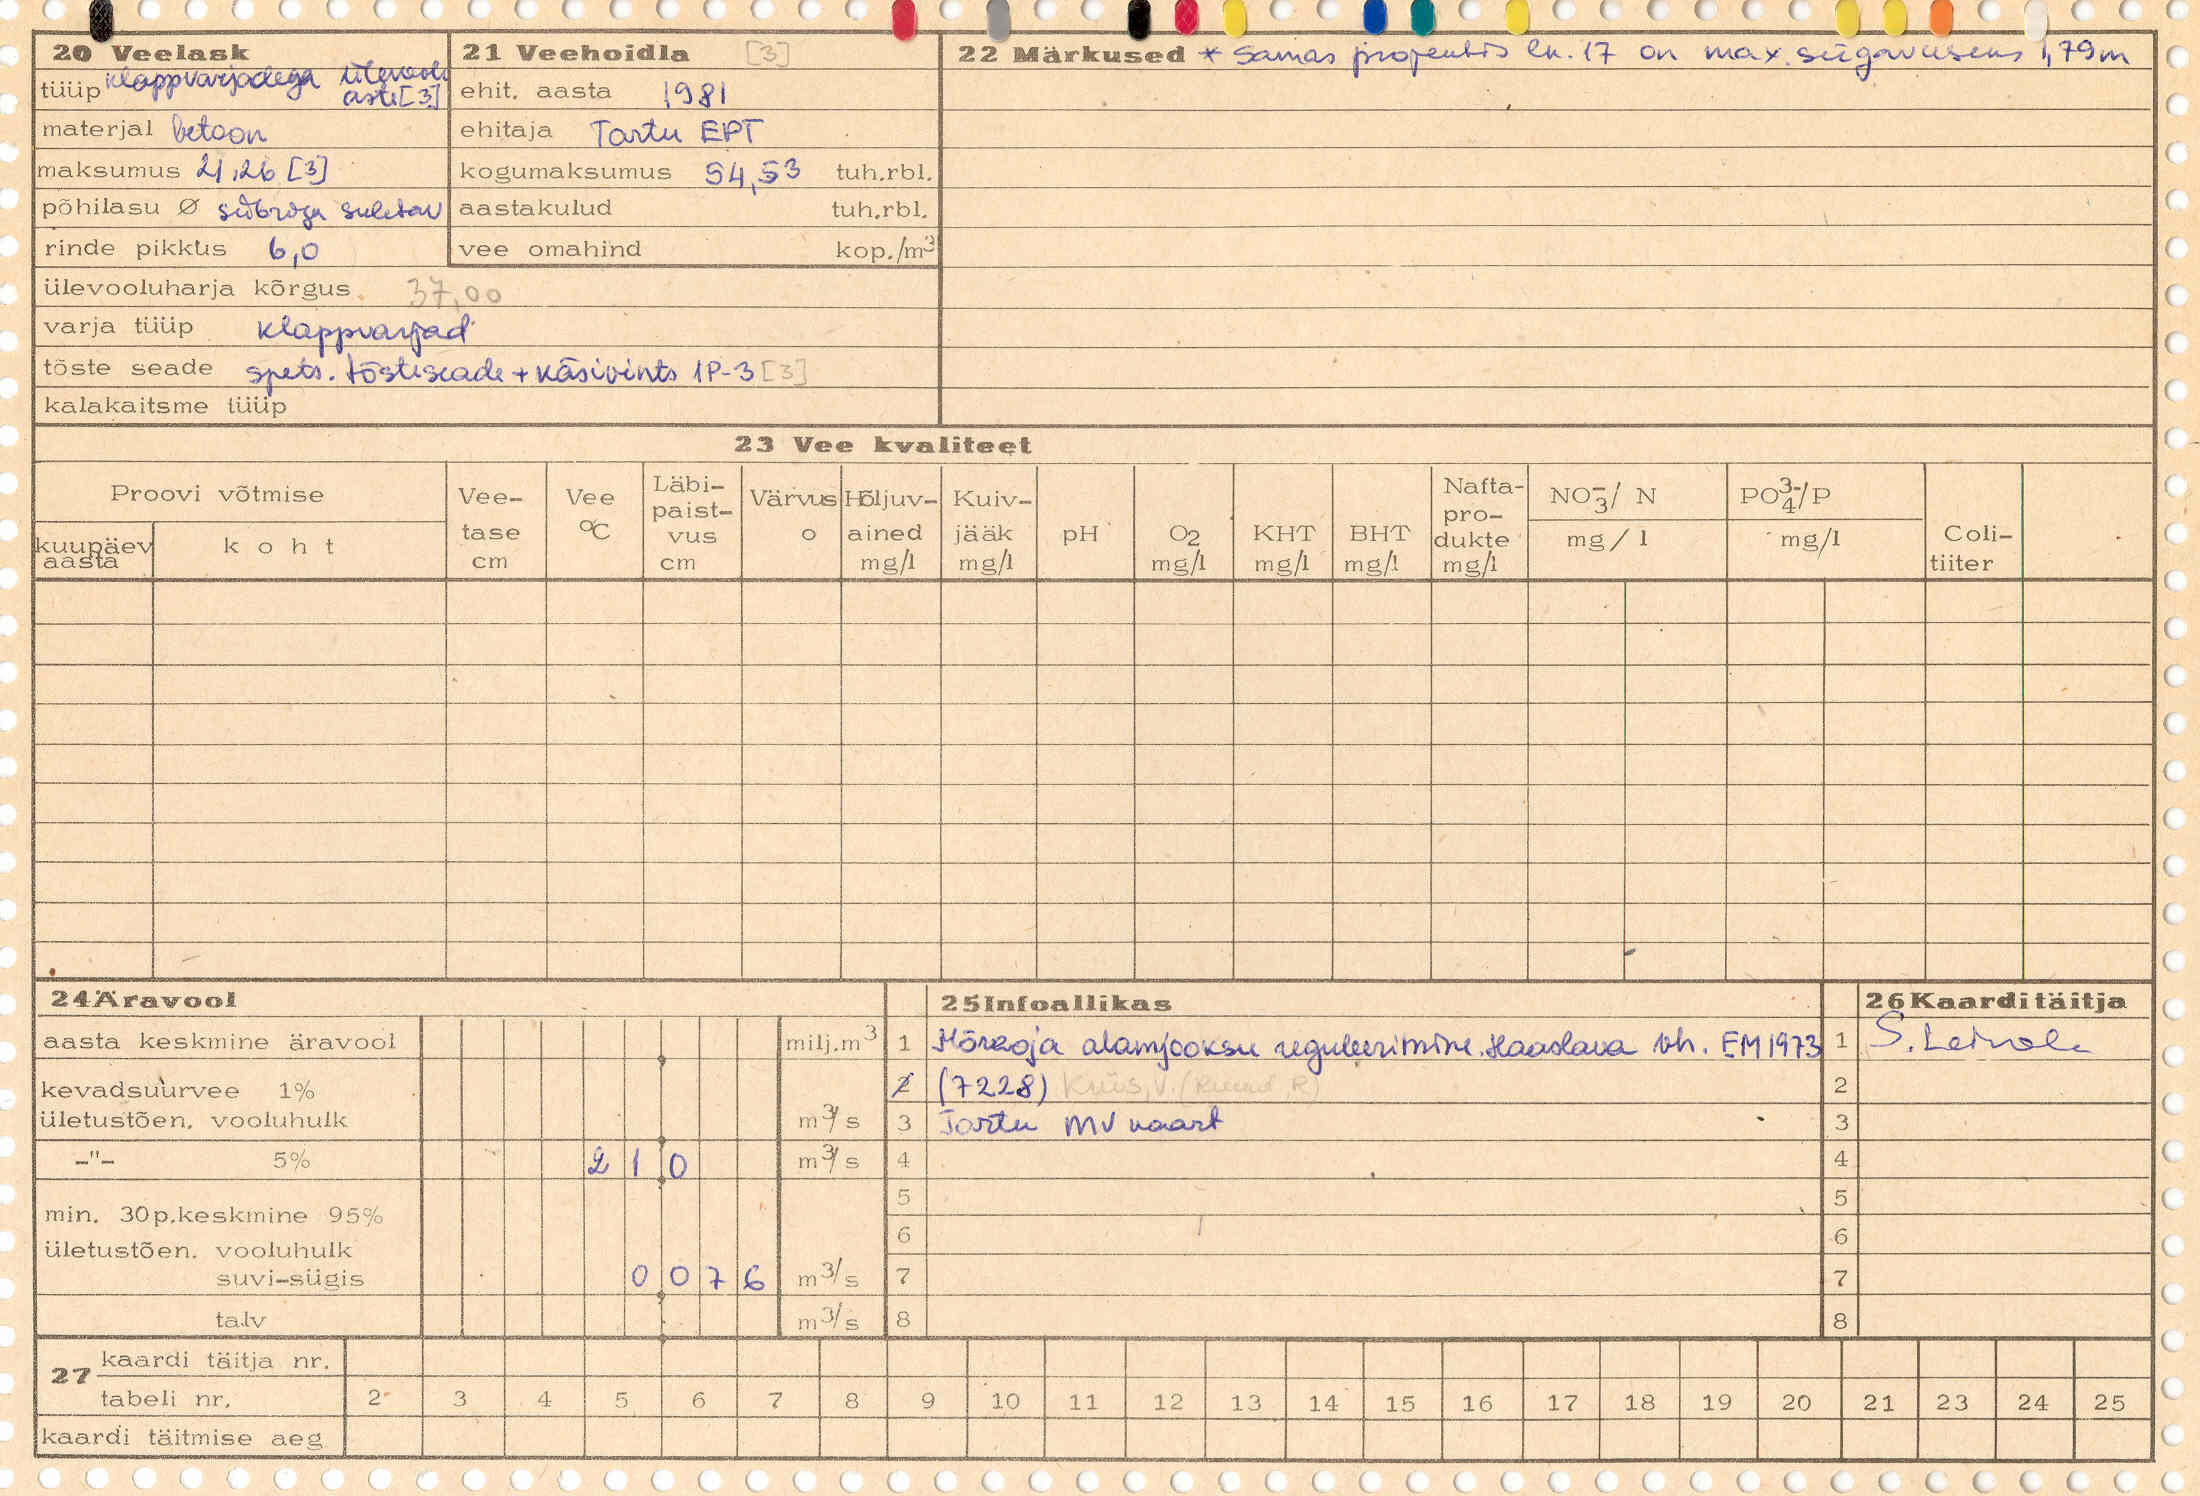 20 Veelask
tüüp klappvarjadega ülevoolu
aste [3]
materjal betoon
maksumus 21,26 [3]
põhilasu Ø siibriga suletav
rinde pikkus 6,0
ülevooluharja kõrgus 37,00
varja tüüp klappvarjad
tõste seade spets. tõsteseade + käsivints 1P-3 [3]
kalakaitsme tüüp
21 Veehoidla [3]
ehit. aasta 1981
ehitaja Tartu EPT
kogumaksumus 54,53 tuh.rbl.
aastakulud tuh.rbl.
vee omahind kop./m³
22 Märkused * Samas projektis lk. 17 on max. sügavuseks 1,79m
23 Vee kvaliteet
Proovi võtmise
kuupäev aasta
koht
Vee-tase cm
Vee °C
Läbi-paist-vus cm
Värvus o
Hõljuv-ained mg/l
Kuiv-jääk mg/l
pH
O2 mg/l
KHT mg/l
BHT mg/l
Nafta-pro-dukte mg/l
NO3⁻/ N mg/l
PO4³⁻/P mg/l
Coli-tiiter
24 Äravool
aasta keskmine äravool milj.m³
kevadsuurvee 1%
ületustõen. vooluhulk m³/s
-"- 5% 2 1 0 m³/s
min. 30p.keskmine 95%
ületustõen. vooluhulk
suvi-sügis 0 0 7 6 m³/s
talv m³/s
25 Infoallikas
1 Mõraoja alamjooksu reguleerimine. Haaslava vh. EM 1973
2 (7228) Kriis, V. (Ruud, R)
3 Tartu MV kaart
4
5
6
7
8
26 Kaardi täitja
1 S. Leivak
2
3
4
5
6
7
8
27 kaardi täitja nr.
tabeli nr. 2 3 4 5 6 7 8 9 10 11 12 13 14 15 16 17 18 19 20 21 23 24 25
kaardi täitmise aeg